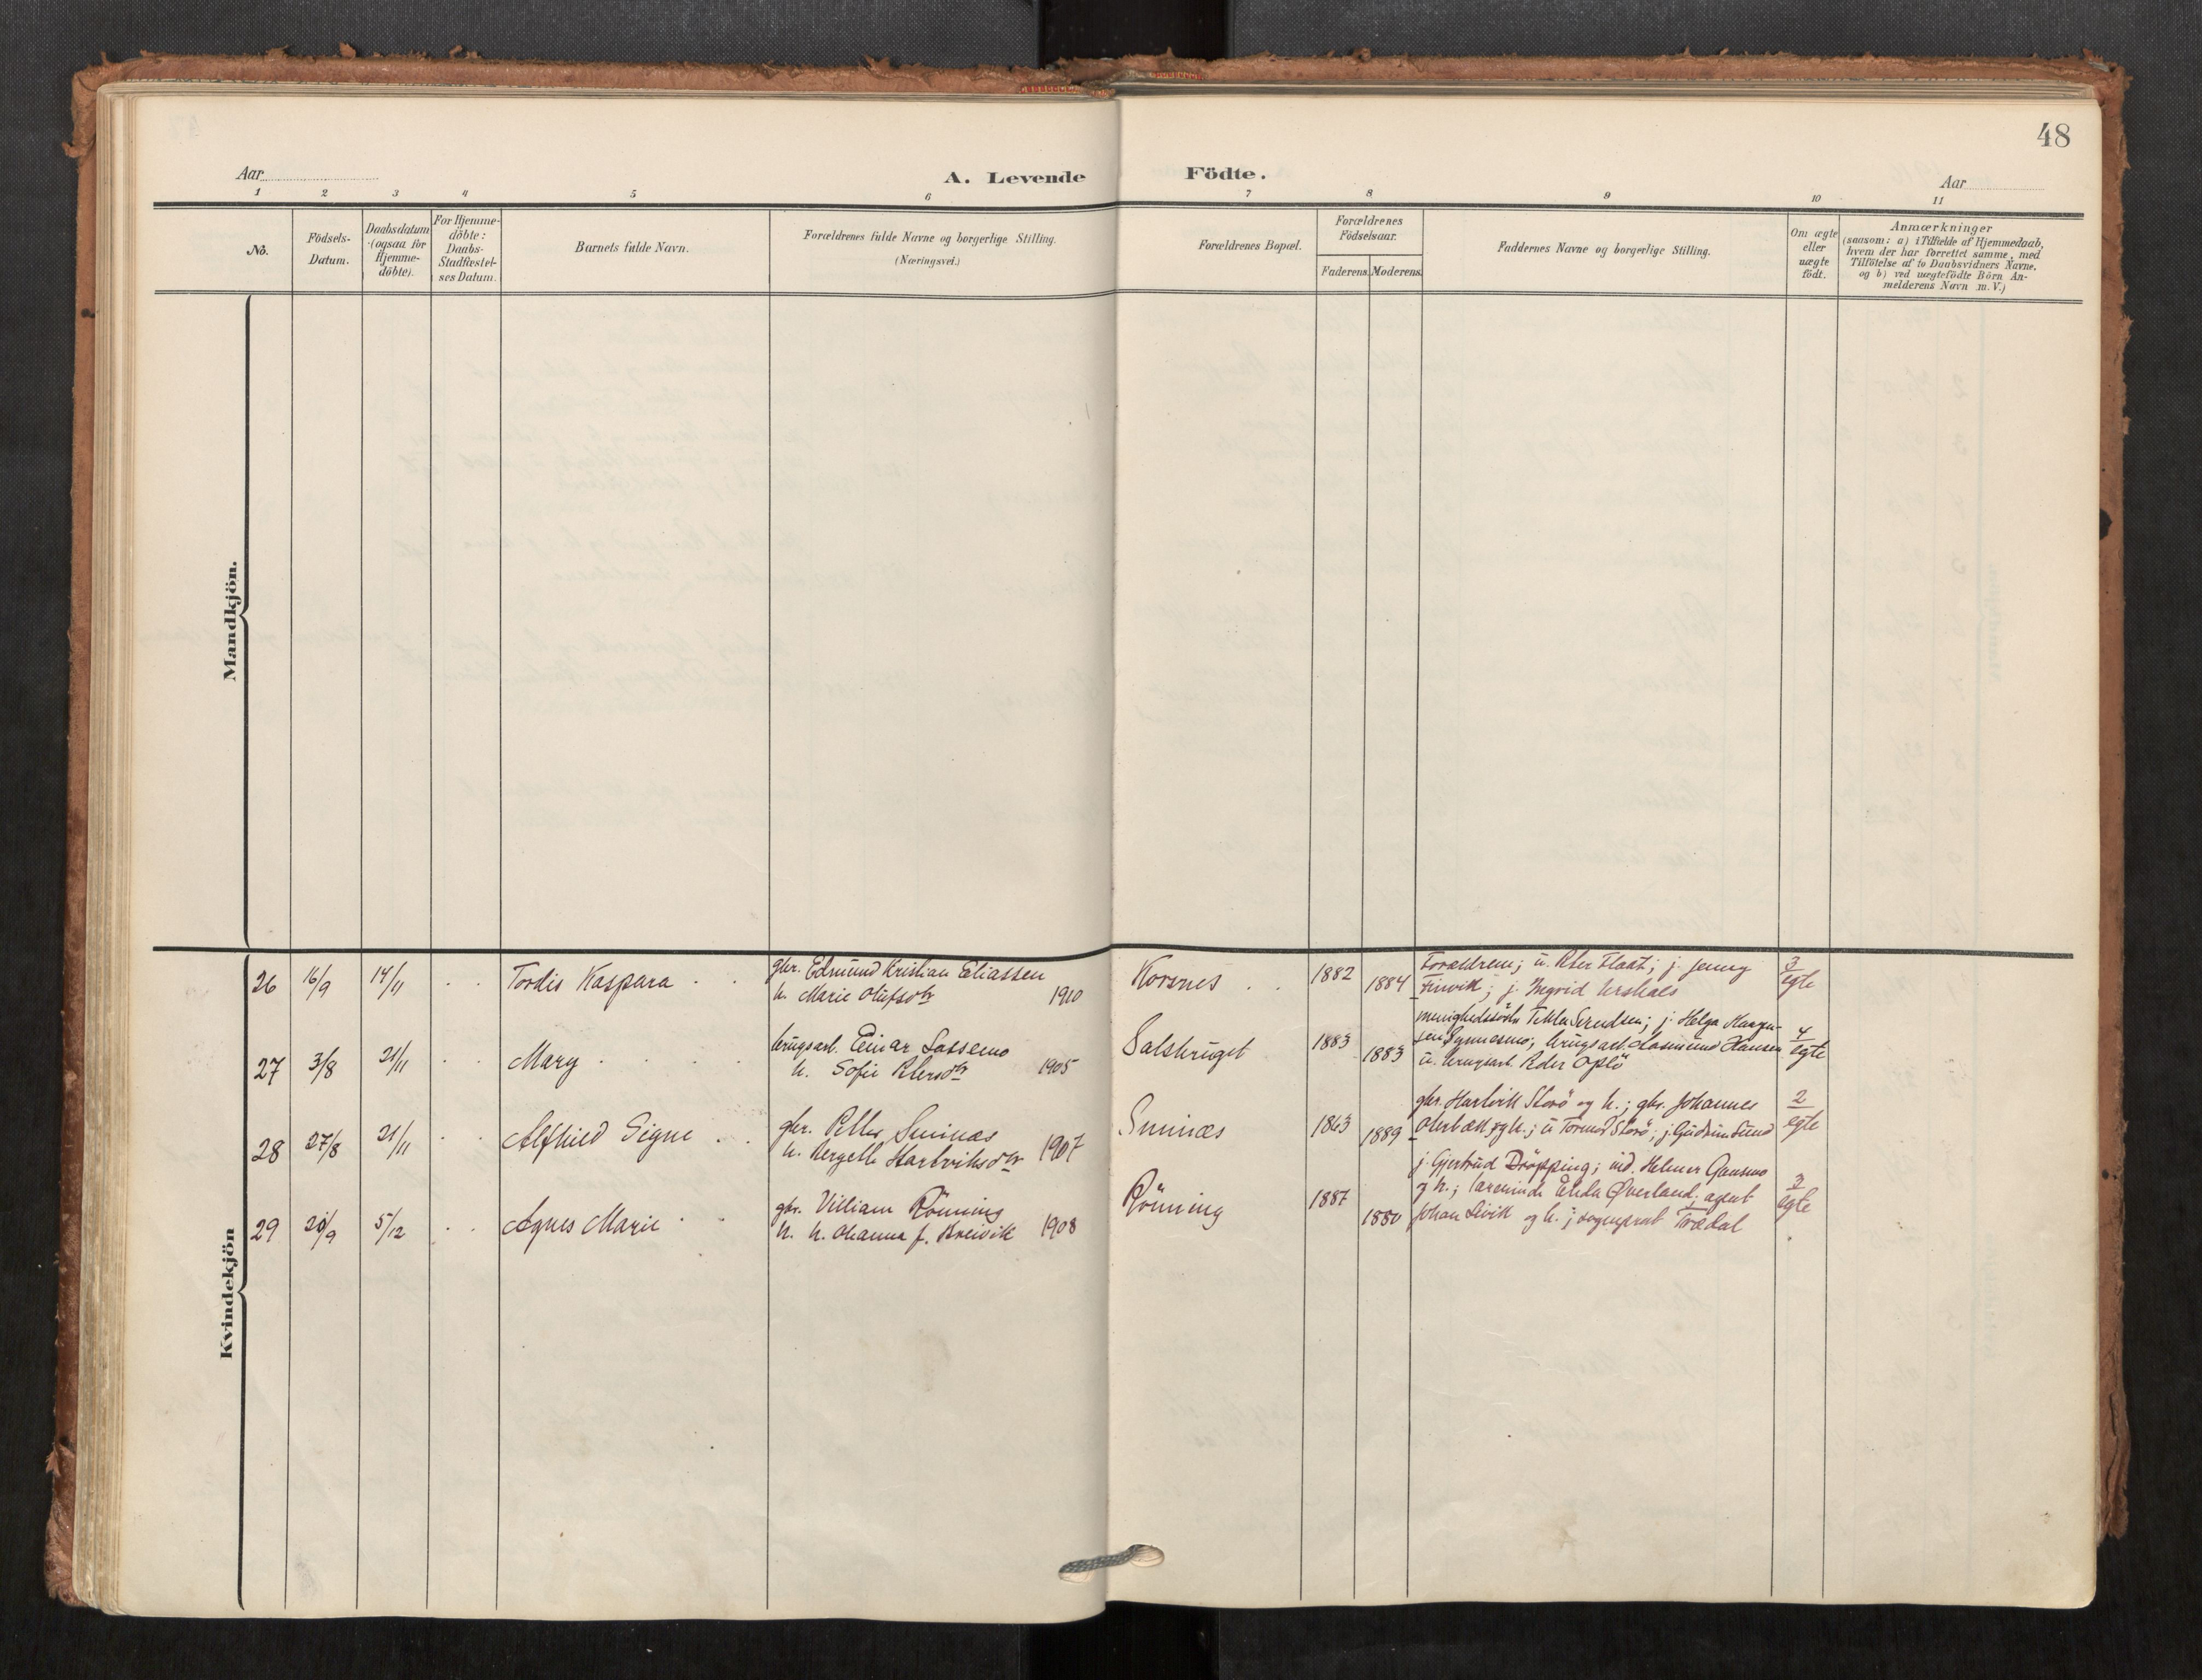 48
Aar
A. Levende Födte.
Aar
1 2 3 4 5 6 7 8 9 10 11
No.
Födsels-
Datum.
Daabsdatum
(ogsaa for
Hjemme-
döbte).
For Hjemme-
döbte:
Daabs-
Stadfæstel-
ses Datum.
Barnets fulde Navn.
Forældrenes fulde Navne og borgerlige Stilling.
(Næringsvei.)
Forældrenes Bopæl.
Forældrenes
Födselsaar.
Faderens. Moderens.
Faddernes Navne og borgerlige Stilling.
Om ægte
eller
uægte
födt.
Anmærkninger
(saasom: a) i Tilfælde af Hjemmedaab,
hvem der har forrettet samme, med
Tilföielse af to Daabsvidners Navne.
og b) ved uægtefödte Börn An-
melderens Navn m.V.)
Mandkjön.
Kvindekjön
26 16/9 14/11 Tordis Kaspara
gbr. Edmund Kristian Eliassen
h. Marie Olufsdtr 1910
Korsnes 1882 1884
Forældrene; u. Peter Flaat; j. Jenny
Finvik; j. Ingrid
3
egte
27 3/8 21/11 Mary
brugsarb. Einar Lassemo
h. Sofie Petersdtr 1905
Salsbruget 1883 1883
menighedssöster Tekla Svendsen; j. Helga Haagen-
sen; brugsarb. Hansen
u. brugsarb. Peder Oplö
4
egte
28 27/8 21/11 Alfhild Signe
gbr. Petter Sminæs
h. Bergette Hartviksdtr 1907
Sminæs 1863 1889
gbr. Hartvik Storö og h.; gbr. Johannes
Oterbæk og h.; u Tormod Storö; j. Gudrun Sund
2
egte
29 20/9 5/12 Agnes Marie
gbr. Villiam Rönning
h. h. Ohanna f. Kreivik 1908
Rönning 1887 1880
j. Gjertrud Dröpping; ind. Helmer Gansmo
og h.; lærerinde Överland; agent
Johan Livik og h.; sogneprest Trædal
3
egte